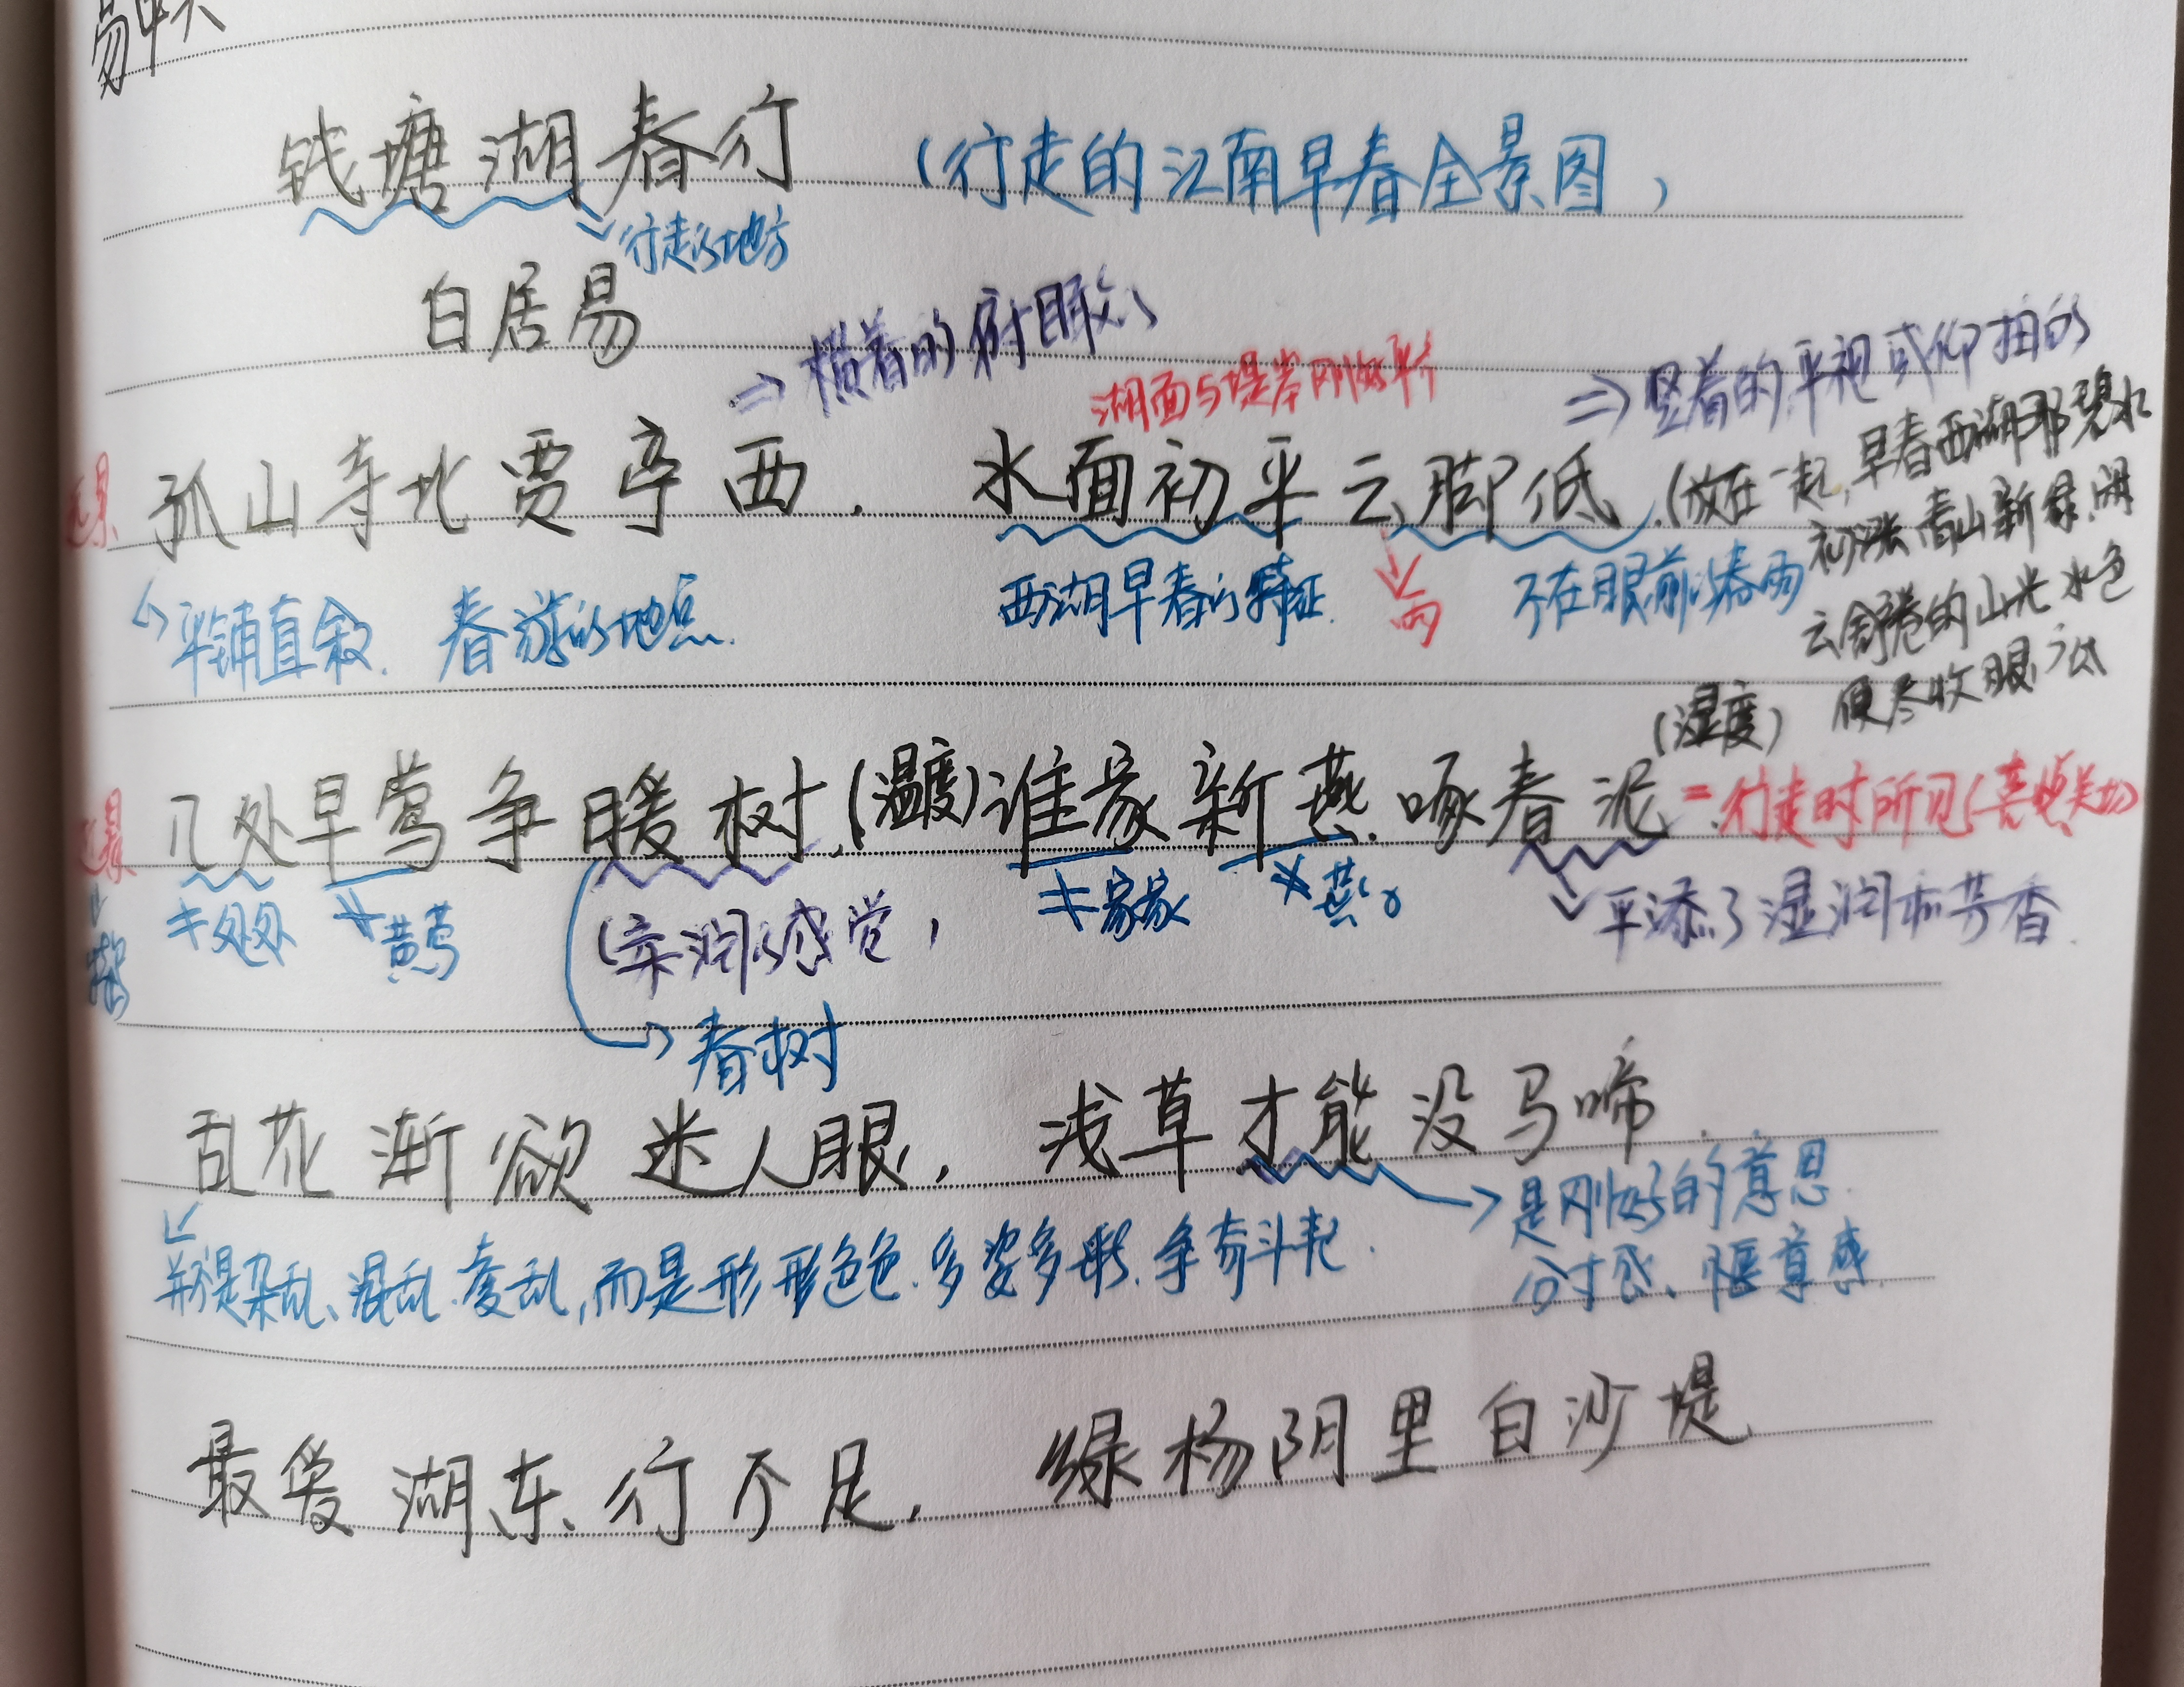 钱塘湖春行 (行走的江南早春全景图)
行走的地方
白居易
⇒横着的俯眼
湖面与堤岸刚好平
⇒竖着的平视或仰拍的
远景 孤山寺北贾亭西, 水面初平云脚低.(放在一起,早春西湖那碧水
初涨青山新绿,闲
云舒卷的山光水色
便尽收眼底
平铺直叙. 春游的地点. 西湖早春的特征. 雨 不在眼前的春雨
(湿度)
近景 几处早莺争暖树,(温度)谁家新燕啄春泥 = 行走时所见(喜悦关切)
≠处处 黄莺 (亲润的感觉) ≠家家 燕 平添了湿润和芳香.
春树
乱花渐欲迷人眼, 浅草才能没马啼.
是刚好的意思.
并不是杂乱、混乱、变乱,而是形形色色.多姿多彩.争奇斗艳.
分寸感、惬意感.
最爱湖东行不足, 绿杨阴里白沙堤